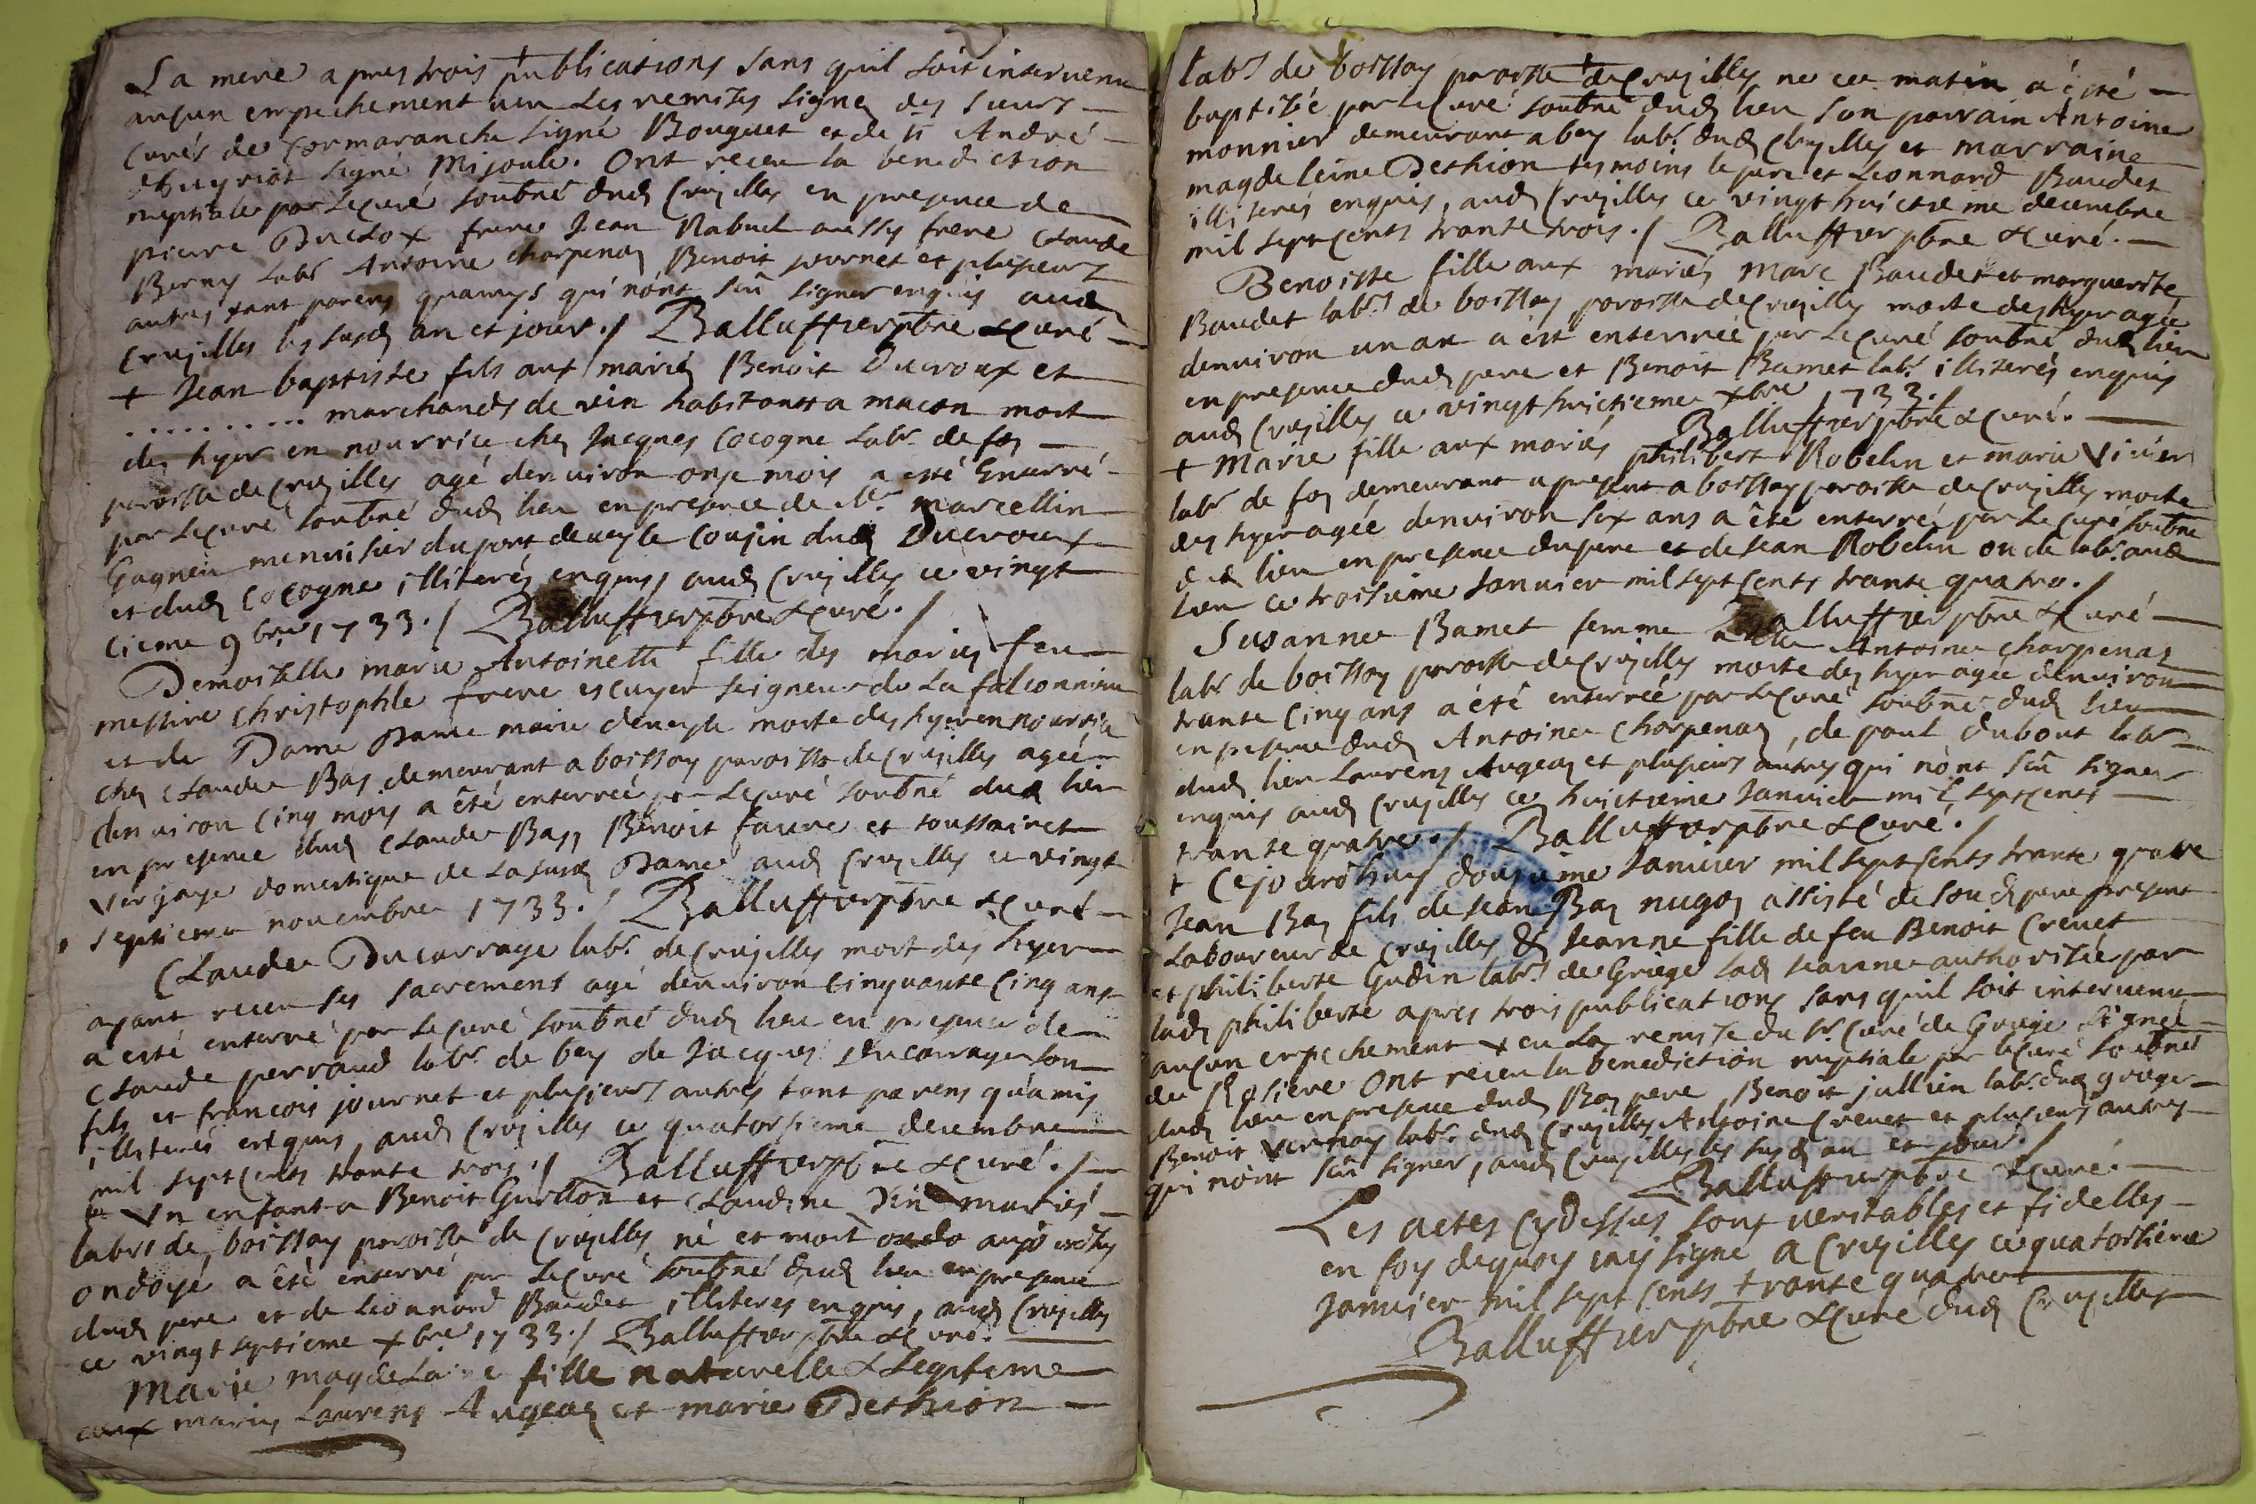 La mere apres trois publications sans quil soit intervenu
aucun empechement veu les remises signez des sieurs
curés de Cormaranche signé Bouguet et de st André
dhuyriat signé Mijoule. Ont receu la benediction
nuptiale par le curé soubné dudt Crusilles en presence de
pierre Duclox frere Jean Nabuel aussy frere Claude
Berny labr Antoine charpenay Benoit journet et plusieurs
autres tant parens quamys qui nont sçû signer enquis audt
Crusilles les susdt an et jour ./ Balluffier pbre & curé
+ Jean baptiste fils aux mariéz Benoit Ducroux et
.......... marchands de vin habitants a macon mort
des hyer en nourrice chez Jacques Cocogne labr de foy
paroisse de Crusilles agé denviron onze mois a esté Enterré
par le curé soubné dudt lieu en presence de Sr. Marcellin
Gagneu menuisier du port de veyle Cousin dudt Ducroux
et dudt Cocogne illiterés enquis, audt Crusilles ce vingt
cieme 9bre 1733 ./ Balluffier pbre & curé ./
Demoiselle marie Antoinette fille des mariés feu
messire christophle frere escuyer seigneur de La falconniere
et de Dame Dame marie deveyle morte des hyer en nourrice
chez Claude Bay demeurant a boissay paroisse de Crusilles agée
denviron cinq moys a êté enterreé par le curé soubné dudt lieu
en presence dudt Claude Bay, Benoit faure et toussainct
verjaye domestique de la susdt Dame audt Crusilles ce vingt
septieme novembre 1733 ./ Balluffier pbre & curé
Claude Ducarrage labr de Crusilles mort des hyer
ayant receu ses sacrement agé denviron cinquante cinq ans
a esté enterré par le curé soubné dudt lieu en presence de
Claude perraud labr de bey de Jacques Ducarrage son
fils et francois journet et plusieurs autres tant parens qu'amis
illiterés enquis, audt Crusilles ce quatorsieme decembre
mil sept cents trante trois ./ Balluffier pbre & curé ./
Vn enfant a Benoit Guillon et Claudine Din mariés
labrs de boissay paroisse de Crusilles né et mort aujourdhuy
ondoyé a êté enterré par le curé soubné dudt lieu en presence
dudt pere et de Leonnard Baudet illiteres enquis, audt Crusilles
ce vingt septieme xbre 1733 ./ Balluffier pbre & curé.
Marie magdelaine fille naturelle & legitime
aux mariés Laurens Augeay et marie Dethion
labrs de boissay paroisse de Crusilles né ce matin a été
baptisée par le Curé soubné dudt lieu son parrain Antoine
monnier demeurant a bey labr dudt Crusilles et marraine
magdeleine Dethion tesmoins le pere et Leonnard Baudet
illiteres enquis, audt Crusilles ce vingt huictieme decembre
mil sept cents trante trois ./ Balluffier pbre & curé.
Benoiste fille aux mariés Marc Baudet et marguerite
Baudet labrs de boissay paroisse de Crusilles morte des hyer agée
denviron un an a êté enterreé par le curé soubné dudt lieu
en presence dudt pere et Benoit Bamet labr illiterés enquis
audt Crusilles ce vingt huictieme xbre 1733 ./
Balluffier pbre & curé.
+ Marie fille aux mariés philibert Robelin et marie Vivier
labr de foy demeurant a present a boissay paroisse de Crusilles morte
des hyer agée denviron six ans a été enterré par le Curé soubné
dudt lieu en presence du pere et de Jean Robelin oncle labr audt
lieu ce troisieme Janvier mil sept cents trante quatre ./
Balluffier pbre & curé
Susanne Bamet femme a Antoine charpenay
labr de boissay paroisse de Crusilles morte des hyer agée denviron
trante cinq ans a été enterreé par le Curé soubné dudt lieu
en presence dudt Antoine Charpenay, de paul dubout labr
dudt lieu Laurens Augeay et plusieurs autres qui nont sçû signer
enquis audt Crusilles ce huictieme Janvier mil sept cents
trante quatre ./ Balluffier pbre & curé ./
+ Cejourdhuy douzieme Janvier mil sept cents trante quatre
Jean Bay fils de Jean Bay nugoy assisté de sondt pere present
Laboureur de Crusilles & Jeanne fille de feu Benoit Crevet
et philiberte Gudin labrs de Griege ladt Jeanne authorisée par
ladt philiberte apres trois publications sans quil soit intervenu
aucun empechement veu la remise du Sr Curé de Griege signé
de Rosiere Ont receu la benediction nuptiale par le curé soubné
dudt lieu en presence dudt Bay pere, Benoit jullien labr dudt griege
Benoit Vernay labr dudt Crusilles Antoine Crevet et plusieurs autres
qui n'ont sçû signer, audt Crusilles les susdt an et jour ./
Balluffier pbre & curé.
Les actes cydessus sont veritables et fidelles
en foy dequoy jay signé a Crusilles ce quatorsieme
Janvier mil sept cents trante quatre
Balluffier pbre & curé dudt Crusilles